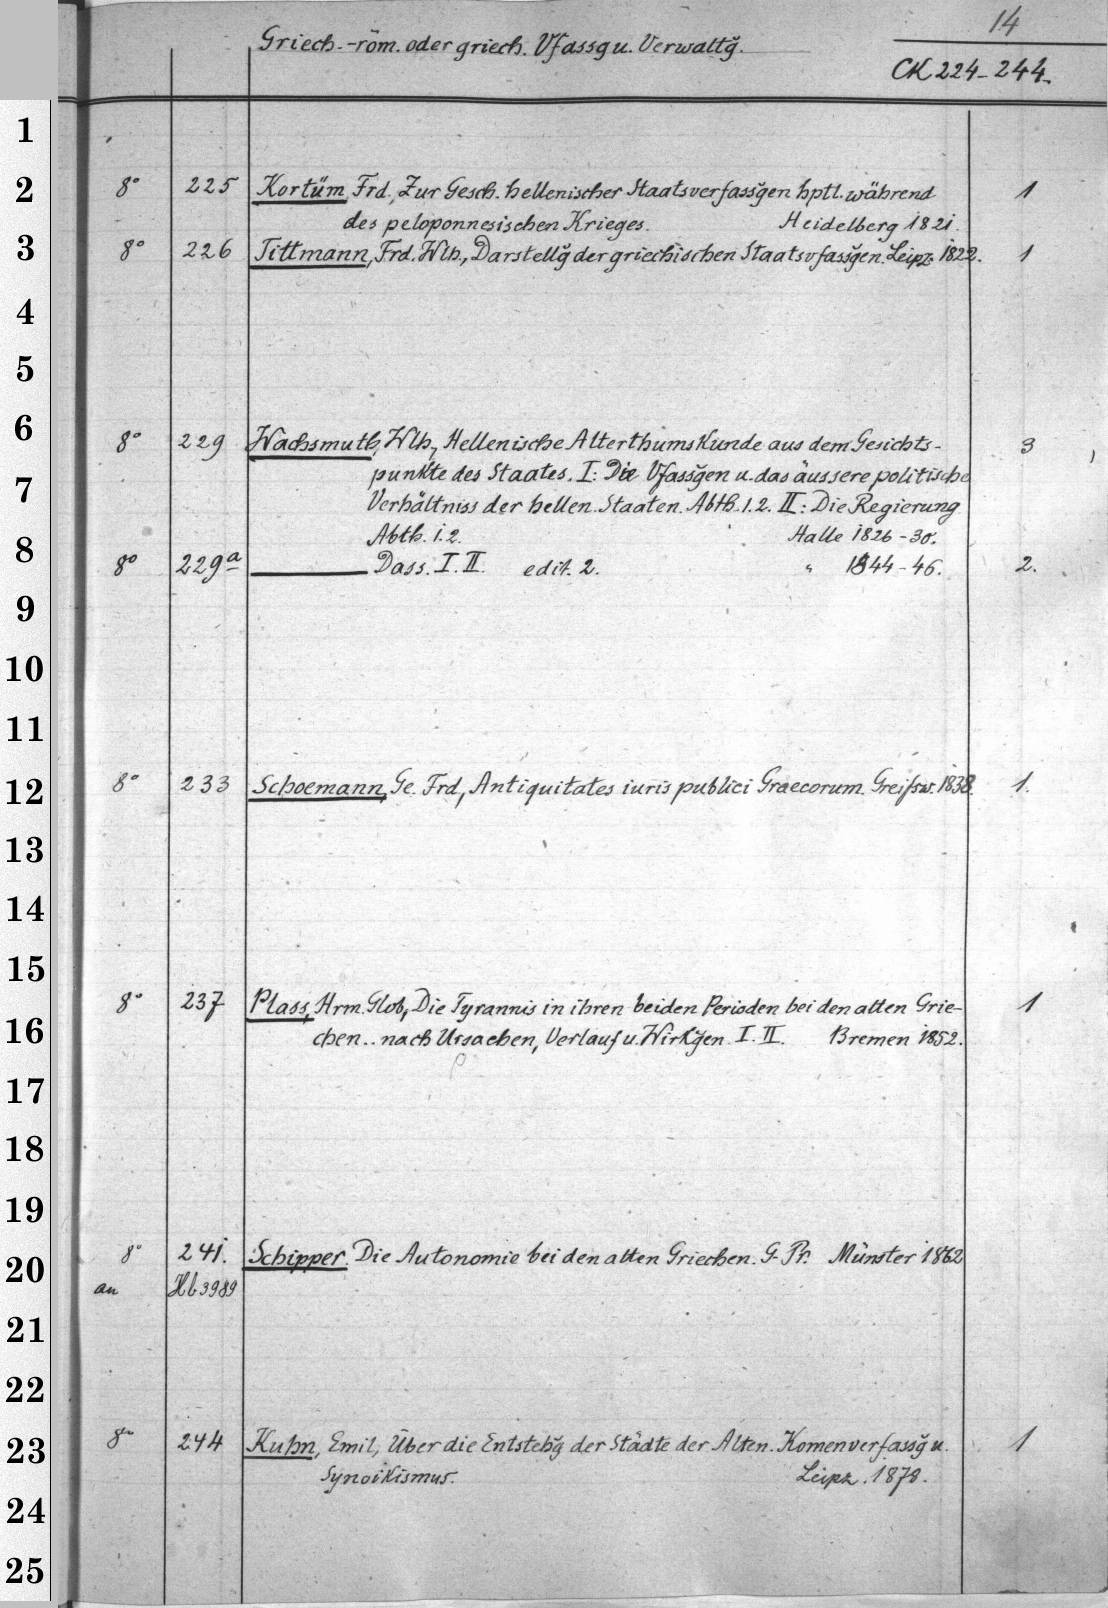 14
Griech.-röm. oder griech. Vfassg u. Verwaltg̃.
CK 224-244.
1
2 8° 225 Kortüm, Frd., Zur Gesch. hellenischer Staatsverfassg̃en hptl. während 1
des peloponnesischen Krieges. Heidelberg 1821.
3 8° 226 Tittmann, Frd. Wlh., Darstellg̃ der griechischen Staatsvfassg̃en. Leipz. 1822. 1
4
5
6 8° 229 Wachsmuth, Wlh., Hellenische Alterthumskunde aus dem Gesichts- 3
7 punkte des Staates. I: Die Vfassg̃en u. das äussere politische
Verhältniss der hellen. Staaten. Abth. 1.2. II: Die Regierung
8 Abth. 1.2. Halle 1826-30.
8° 229a Dass. I. II. edit. 2. " 1844-46. 2.
9
10
11
12 8° 233 Schoemann, Ge. Frd, Antiquitates iuris publici Graecorum. Greifsw. 1838. 1.
13
14
15
8° 237 Plass, Hrm. Glob, Die Tyrannis in ihren beiden Perioden bei den alten Grie- 1
16 chen.. nach Ursachen, Verlauf u. Wirkg̃en I. II. Bremen 1852.
17
18
19
20 8° 241. Schipper. Die Autonomie bei den alten Griechen. G. Pr. Münster 1862
an Hb 3989
21
22
23 8° 244 Kuhn, Emil, Über die Entstehg̃ der Städte der Alten. Komenverfassg̃ u. 1
Synoikismus. Leipz. 1878.
24
25